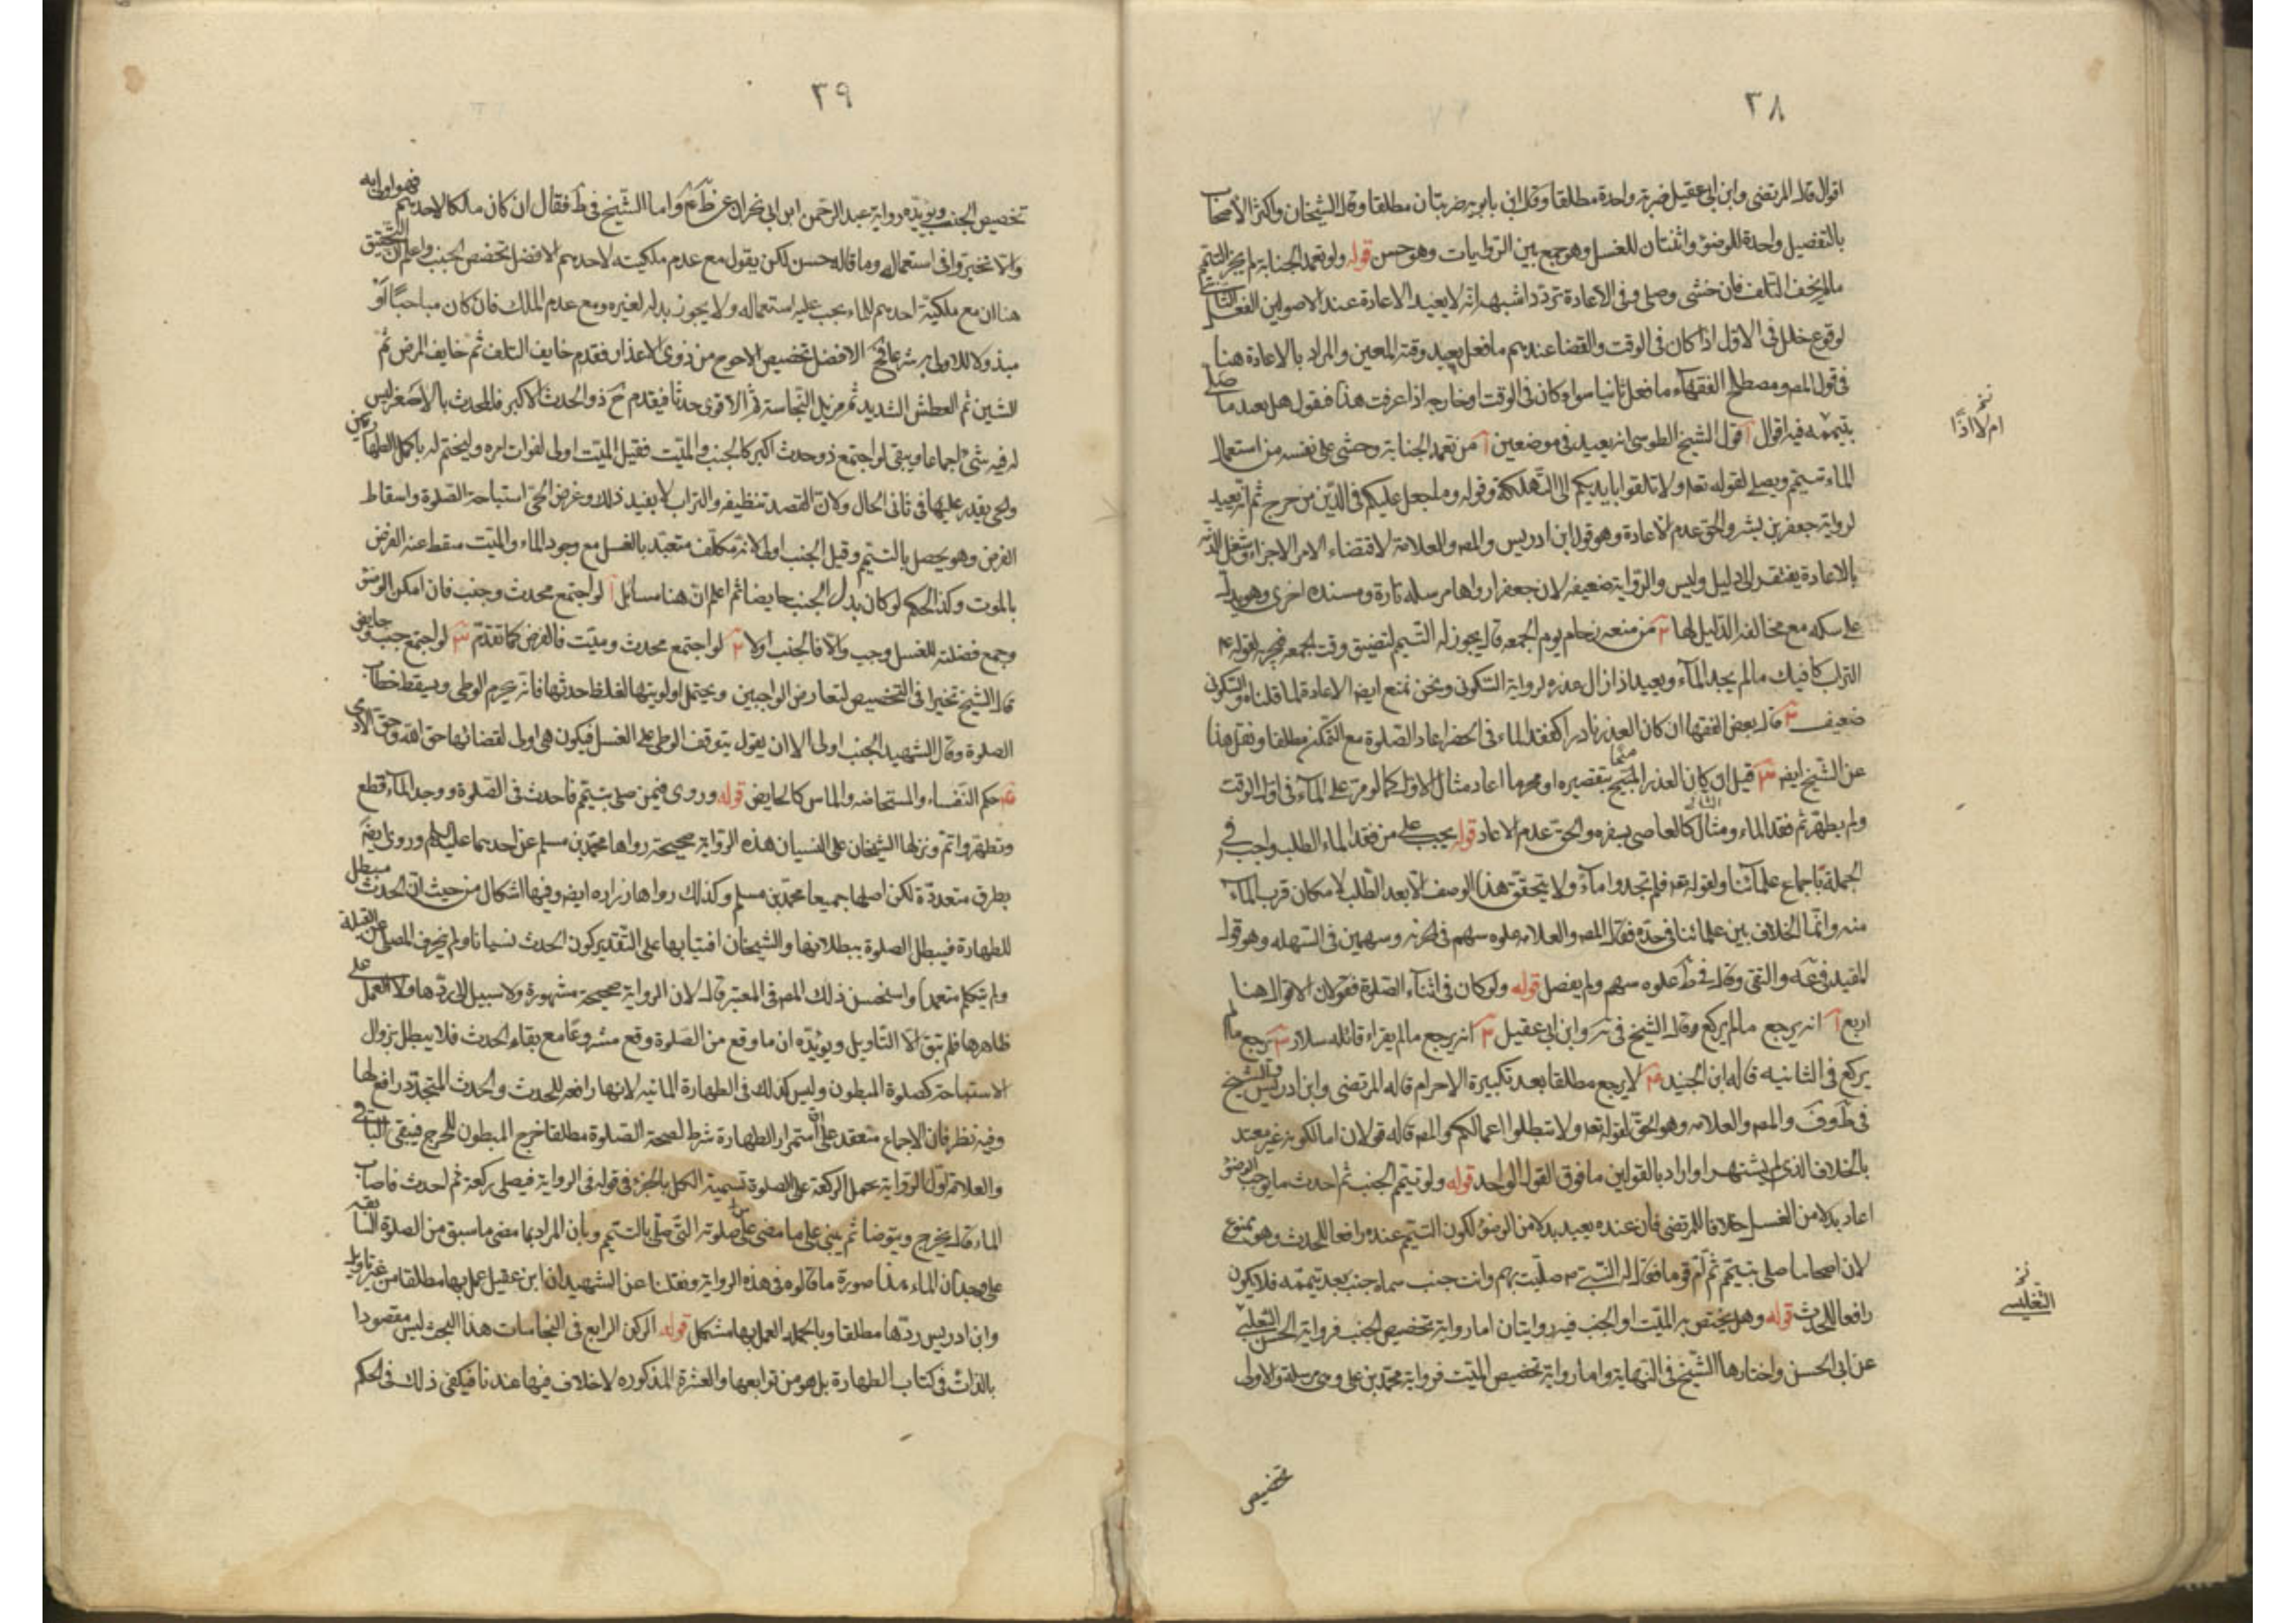 ٣٨
اقوال قال المرتضى وابن ابي عقيل ضربة واحدة مطلقا وقال ابن بابويه ضربتان مطلقا وقال الشيخان واكثر الاصحاب
بالتفصيل واحدة للوضوء واثنتان للغسل وهو جمع بين الروايات وهو حسن قوله ولو تعمد الجنابة لم يجز التيمم
مالم يخف التلف فان خشى وصلى وفى الاعادة تردد اشبهه انه لا يعيد الاعادة عند الاصوليين الفعل الثانى
لوقوع خلل فى الاول اذا كان فى الوقت والقضا عندهم ما فعل بعيد وقته المعين والمراد بالاعادة هنا
فى قول المص ومصطلح الفقهاء ما فعل ثانيا سواء كان فى الوقت او خارجه اذا عرفت هذا فنقول هل يعيد ما صلى
بتيممه فيه اقوال آ قول الشيخ الطوسى انه يعيد فى موضعين آ من تعمد الجنابة وخشى على نفسه من استعمال
الماء تيمم ويصلى لقوله تعا ولا تلقوا بايديكم الى التهلكة وقوله وما جعل عليكم فى الدين من حرج ثم انه يعيد
لرواية جعفر بن بشير والحق عدم الاعادة وهو قول ابن ادريس والمص والعلامة لاقتضاء الامر الاجزاء وشغل الذمة
بالاعادة يفتقر الى دليل وليس والرواية ضعيفة لان جعفرا رواها مرسلة تارة ومسندة اخرى وهو يدل
على سكه مع مخالفة الدليل لها ٢ من منعه زحام يوم الجمعه قال يجوز له التيمم لتضيق وقت الجمعه فيجزيه لقوله ع
التراب كافيك مالم يجد المآء ويعيد اذا زال عذره لرواية السكونى ونحن نمنع ايضا الاعادة لما قلناه والسكونى
ضعيف ٣ قال بعض الفقهاء ان كان العذر نادرا كفقد الماء فى الحضر اعاد الصلوة مع التمكن مطلقا ونقل هذا
عن الشيخ ايضا ٤ قيل ان كان العذر المبيح بتقصيره او محرما اعاد مثال الاول كما لو مر على المآء فى اول الوقت
ولم يطهر ثم فقد الماء ومثال الثانى كالعاصى بسفره والحق عدم الاعادة قوله يجب على من فقد الماء الطلب واجب فى
الجملة باجماع علمآئنا ولقوله تعا فلم تجدوا مآء ولا يتحقق هذا الوصف الا بعد الطلب لامكان قرب المآء
منه وانما الخلاف بين علمائنا فى حده فقال المص والعلامه غلوه سهم فى الحزنه وسهمين فى السهله وهو قول
المفيد فى عه والتقى وقال فى ط غلوه سهم ولم يفصل قوله ولو كان فى اثنآء الصلوة فقولان الاقوال هنا
اربع آ انه يرجع مالم يركع وقال الشيخ فى يه وابن ابى عقيل ٢ انه يرجع مالم يقراء قائله سلار ٣ يرجع مالم
يركع فى الثانيه قاله ابن الجنيد ٤ لا يرجع مطلقا بعد تكبيرة الاحرام قاله المرتضى وابن ادريس والشيخ
فى ط وف والمص والعلامه وهو الحق لقوله تعا ولا تبطلوا اعمالكم والمص قاله قولان اما لكونه غير معتد
بالخلاف الذى لم يشتهر او اراد بالقولين ما فوق القول الواحد قوله ولو تيمم الجنب ثم احدث ما يوجب الوضوء
اعاد بدلا من الغسل خلافا للمرتضى فان عنده يعيد بدلا من الوضؤ لكون التيمم عنده رافعا للحدث وهو ممنوع
لان اصحابنا صلى بتيمم ثم ام قوما فقال له النبى ص صليت بهم وانت جنب سماه جنب بعد تيممه فلا يكون
رافعا للحدث قوله وهل يختص به الميت او الجنب فيه روايتان اما رواية تخصيص الجنب فرواية الحسن التغلبى
عن ابى الحسن واختارها الشيخ فى النهاية واما رواية تخصيص الميت فرواية محمد بن على وهى مرسلة والاولى
نخ
ام لا اذا
نخ
التغليسى
تخصيص
٣٩
تخصيص الجنب ويؤيده رواية عبد الرحمن ابن ابى نجران واما الشيخ فى ط فقال ان كان مالكا لاحدهم فهو اولى به
والا تخيروا فى استعماله وما قاله حسن لكن يقول مع عدم ملكيته لاحدهم الافضل تخصص الجنب واعلم ان التحقيق
هنا ان مع ملكية احدهم للماء يجب عليه استعماله ولا يجوز بذله لغيره ومع عدم الملك فان كان مباحا او
مبذولا للاولى به شرعا فح الافضل تخصيص الاحوج من ذوى الاعذار فقدم خايف التلف ثم خايف المرض ثم
الشين ثم العطش الشديد ثم مزيل النجاسة ثم الاقوى حدثا فيقدم ح ذو الحدث الاكبر فالمحدث بالاصغر ليس
له فيه شئ اجماعا ويبقى لو اجتمع ذو حدث اكبر كالجنب والميت فقيل الميت اولى لفوات امره وليختم له باكمل الطهارتين
والحى يقدر عليها فى ثانى الحال ولان القصد تنظيفه والتراب لا يفيد ذلك وغرض الحى استباحة الصلوة واسقاط
الفرض وهو يحصل بالتيمم وقيل الجنب اولى لانه مكلف متعبد بالغسل مع وجود الماء والميت سقط عنه الفرض
بالموت وكذا الحكم لو كان بدل الجنب حايضا ثم اعلم ان هنا مسائل آ لو اجتمع محدث وجنب فان امكن الوضؤ
وجمع فضلته للغسل وجب والا فالجنب اولا ٢ لو اجتمع محدث وميت فالفرض كما تقدم ٣ لو اجتمع جنب وحايض
قال الشيخ تخيرا فى التخصيص لتعارض الواجبين ويحتمل اولويتها لغلظ حدثها فانه يحرم الوطى ويسقط خطاب
الصلوة وقال الشهيد الجنب اولى الا ان يقول بتوقف الوطى على الغسل فيكون هى اولى لقضائها حق الله وحق الآدمى
٤ حكم النفساء والمستحاضه والماس كالحايض قوله وروى فيمن صلى بتيمم فاحدث فى الصلوة ووجد المآء قطع
وتطهر واتم ونزلها الشيخان على النسيان هذه الرواية صحيحة رواها محمد بن مسلم عن احدهما عليه السلم وروى ايضا
بطرق متعددة لكن اصلها جميعا محمد بن مسلم وكذلك رواها زراره ايضا وفيها اشكال من حيث ان الحدث مبطل
للطهارة فيبطل الصلوة ببطلانها والشيخان افتيا بها على التقدير كون الحدث نسيانا ولم ينحرف المصلى عن القبلة
ولم يتكلم متعمدا واستحسن ذلك المص فى المعتبر قال لان الرواية صحيحة مشهورة ولا سبيل الى ردها ولا العمل على
ظاهرها فلم تبق الا التاويل ويؤيده ان ما وقع من الصلوة وقع مشروعا مع بقاء الحدث فلا يبطل بزوال
الاستباحة كصلوة المبطون وليس كذلك فى الطهارة المائيه لانها رافعه للحدث والحدث المتجدد رافع لها
وفيه نظر فان الاجماع منعقد على ان استمرار الطهارة شرط لصحة الصلوة مطلقا خرج المبطون للحرج فيبقى الباقى
والعلامة اول الرواية بحمل الركعة على الصلوة تسمية الكل بالجزء فى قوله فى الرواية فيصلى ركعة ثم احدث فاصاب
الماء قال يخرج ويتوضا ثم يبنى على ما مضى من صلوته التى صلى بالتيمم وبان المراد بما مضى ما سبق من الصلوة السابقه
على وجدان الماء هذا صورة ما قالوه فى هذه الرواية ونقلنا عن الشهيد ان ابن عقيل عمل بها مطلقا من غير تاويل
وابن ادريس ردها مطلقا وبالجملة العمل بها مشكل قوله الركن الرابع فى النجاسات هذا البحث ليس مقصودا
بالذات فى كتاب الطهارة بل هو من توابعها والعشرة المذكوره لا خلاف فيها عندنا فيكفى ذلك فى الحكم